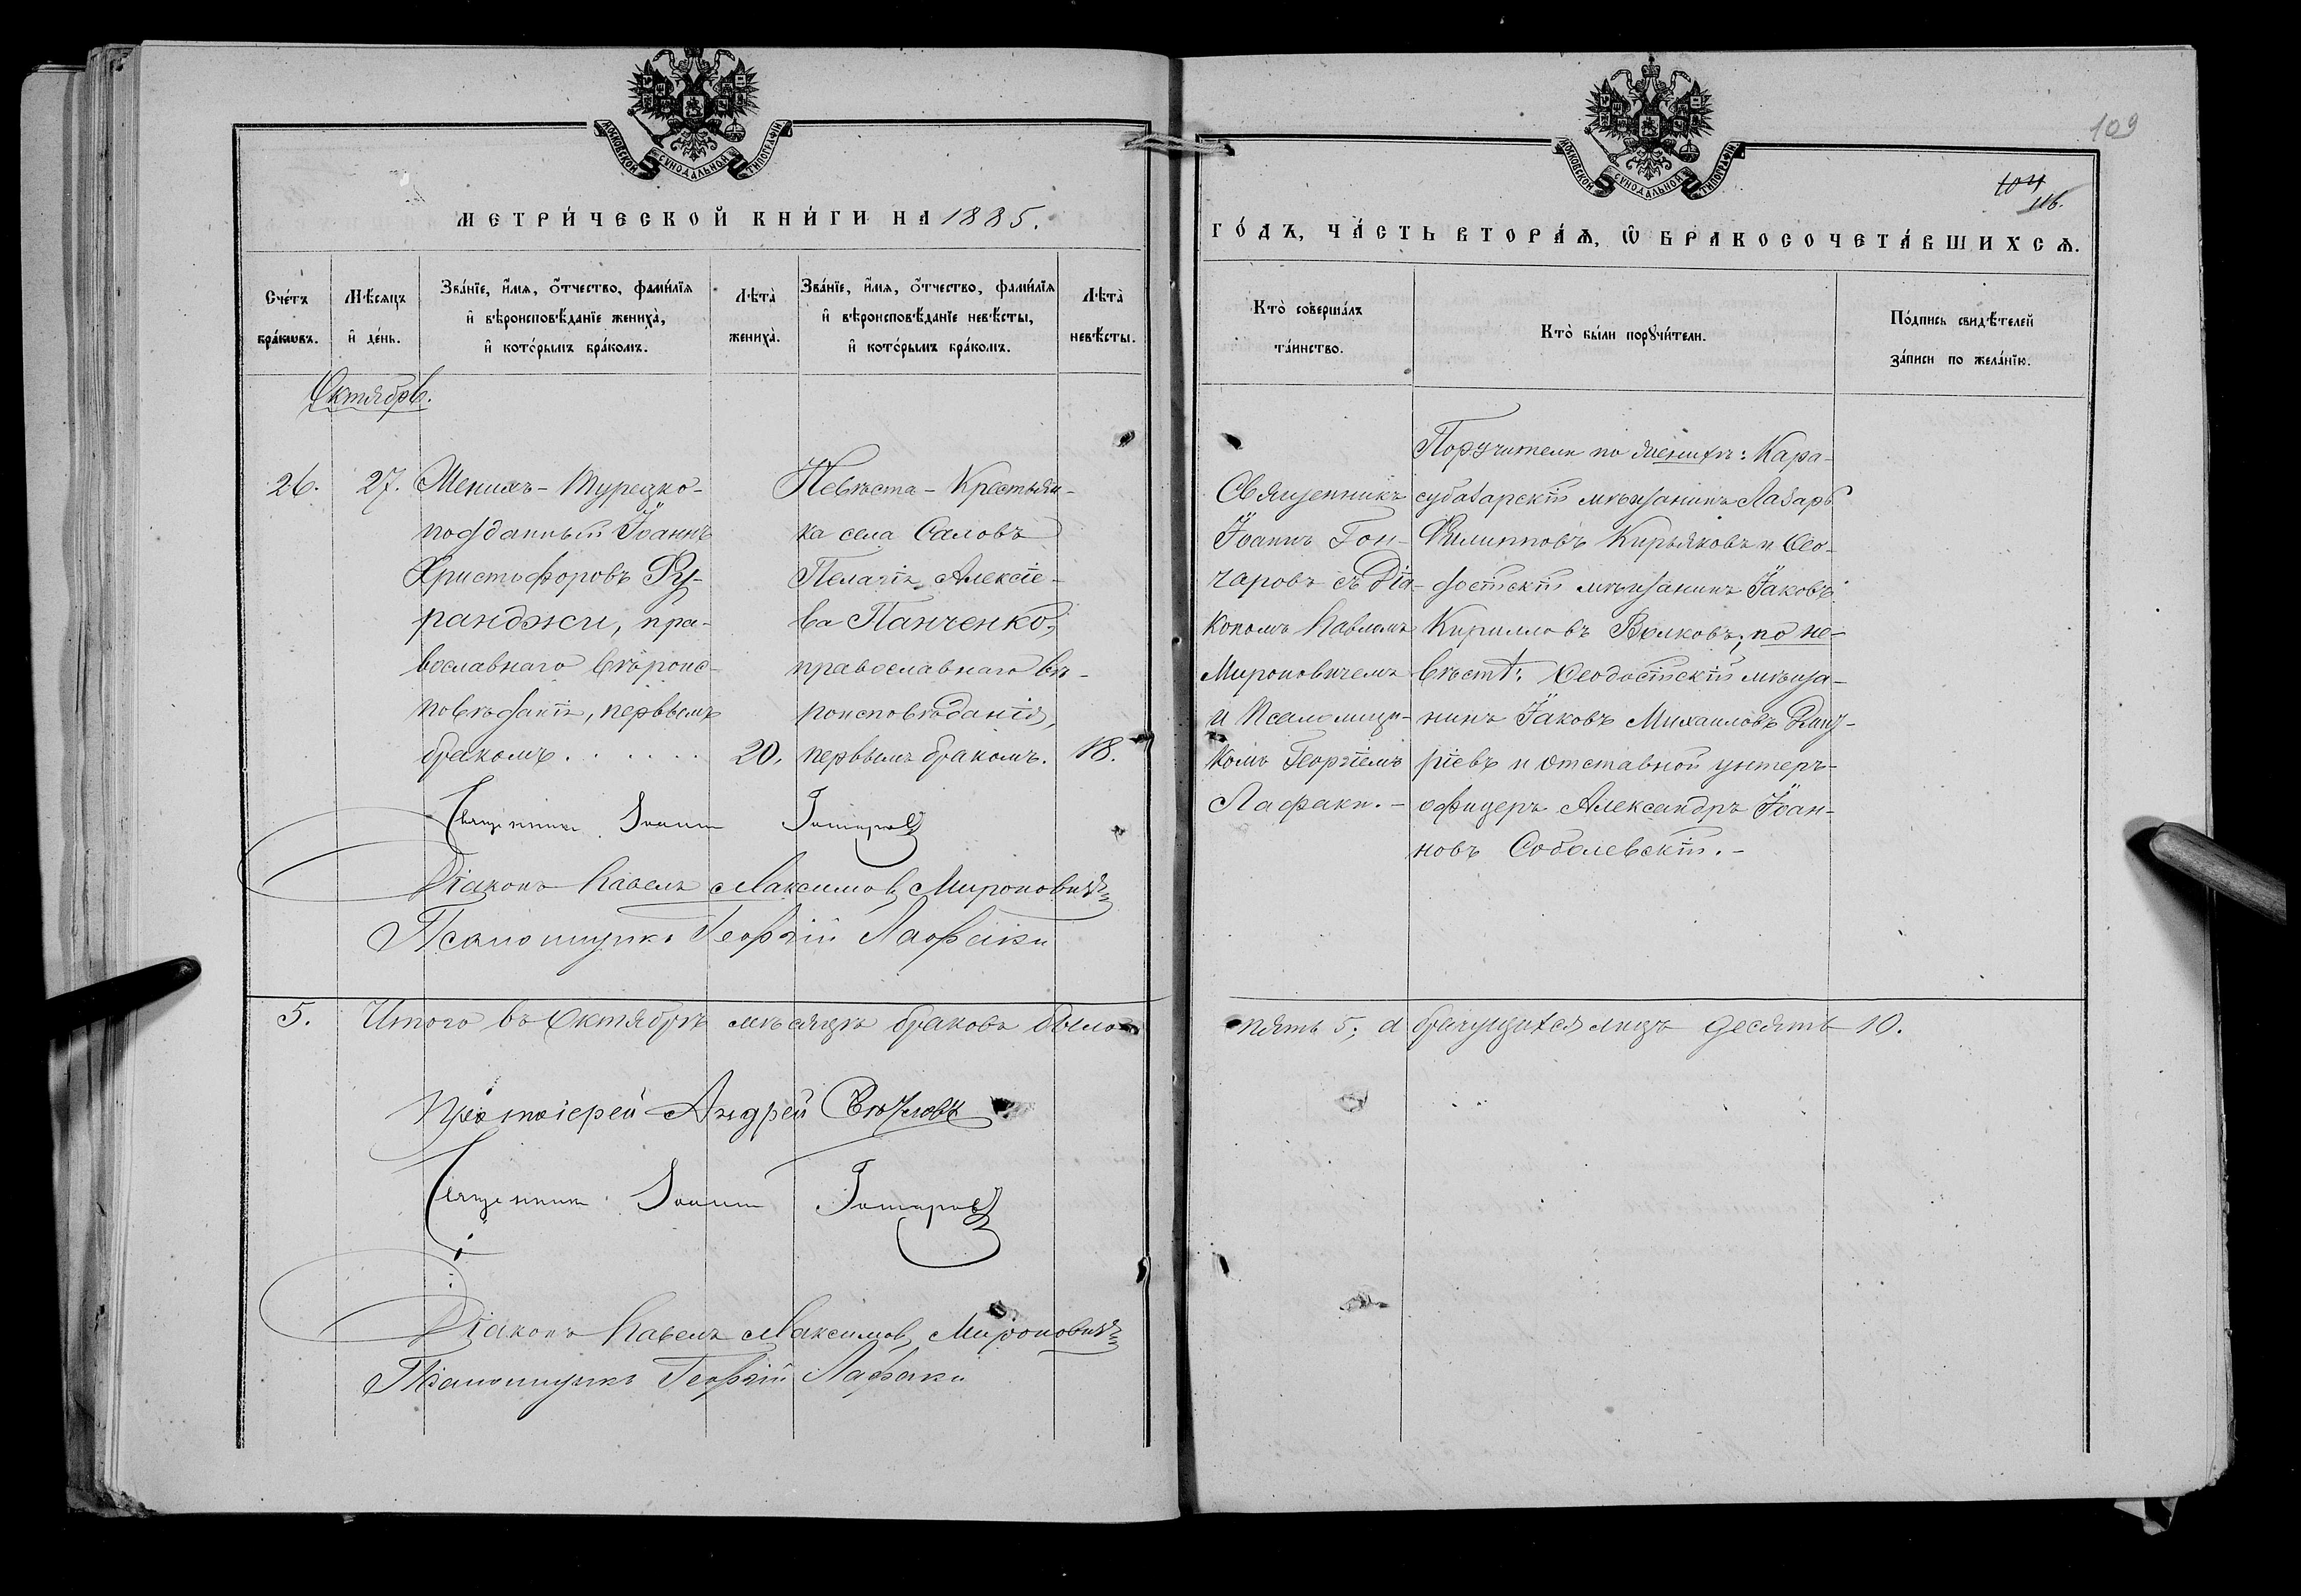 МОСКОВСКОЙ СѴНОДАЛЬНОЙ ТИПОГРАФІИ
МЕТРИ́ЧЕСКОЙ КНИ́ГИ НА 1885.
Сче́тъ бра́кѡвъ.
Мѣ́сяцъ и҆ де́нь.
Зва́нїе, и҆́мя, ѻ҆́тчество, фами́лїя
и҆ вѣроисповѣ́данїе жениха̀,
и҆ кото́рымъ бра́комъ.
Лѣта̀ жениха̀.
Зва́нїе, и҆́мя, ѻ҆́тчество, фами́лїя
и҆ вѣроисповѣ́данїе невѣ́сты,
и҆ кото́рымъ бра́комъ.
Лѣта̀ невѣ́сты.
Октябрь.
26.
27.
Женихъ - Турецко-
подданный Іоаннъ
Христофоровъ Фу-
ранджи, пра-
вославнаго вѣроис-
повѣданія, первымъ
бракомъ. . . . . . .
20.
Невѣста - Крестьян-
ка села Саловъ
Пелагія Алексіе-
ва Панченко,
православнаго вѣ-
роисповѣданія,
первымъ бракомъ.
18.
Священникъ Іоаннъ Гончаровъ
Діаконъ Павелъ Максимов. Мироновичъ
Псаломщикъ Георгій Лафаки
5. Итого въ Октябрѣ мѣсяцѣ браковъ было
Протоіерей Андрей
Священникъ Іоаннъ Гончаровъ
Діаконъ Павелъ Максимов. Мироновичъ
Псаломщикъ Георгій Лафаки
109
104
116.
МОСКОВСКОЙ СѴНОДАЛЬНОЙ ТИПОГРАФІИ
ГО́ДЪ, ЧА́СТЬ ВТОРА́Ѧ, Ѡ҆ БРАКОСОЧЕТА́ВШИХСѦ.
Кто̀ соверша́лъ
та́инство.
Кто̀ бы́ли порꙋчи́тели.
По́дпись свидѣ́телей
за́писи по жела́нїю.
Священникъ
Іоаннъ Гон-
чаровъ съ Діа-
кономъ Павломъ
Мироновичемъ
и Псаломщи-
комъ Георгіемъ
Лафаки. -
Поручители по женихѣ: Кара-
субазарскій мѣщанинъ Лазарь
Филипповъ Кирьяковъ и Ѳео-
досійскій мѣщанинъ Іаковъ
Кирилловъ Волковъ; по не-
вѣстѣ: Ѳеодосійскій мѣща-
нинъ Іаковъ Михаиловъ
и отставной унтеръ-
офицеръ Александръ Іоан-
новъ Соболевскій. -
пять 5; а брачущихся лицъ десять 10.